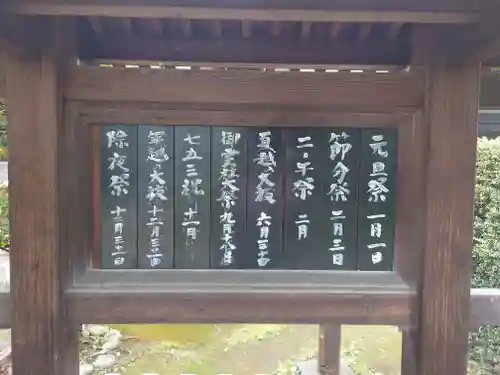 元旦祭 一月一日
節分祭 二月三日
二ノ午祭 二月
夏越の大祓 六月三十日
御雷社大祭 九月十九日
七五三祝 十一月
年越の大祓 十二月三十一日
除夜祭 十二月三十一日